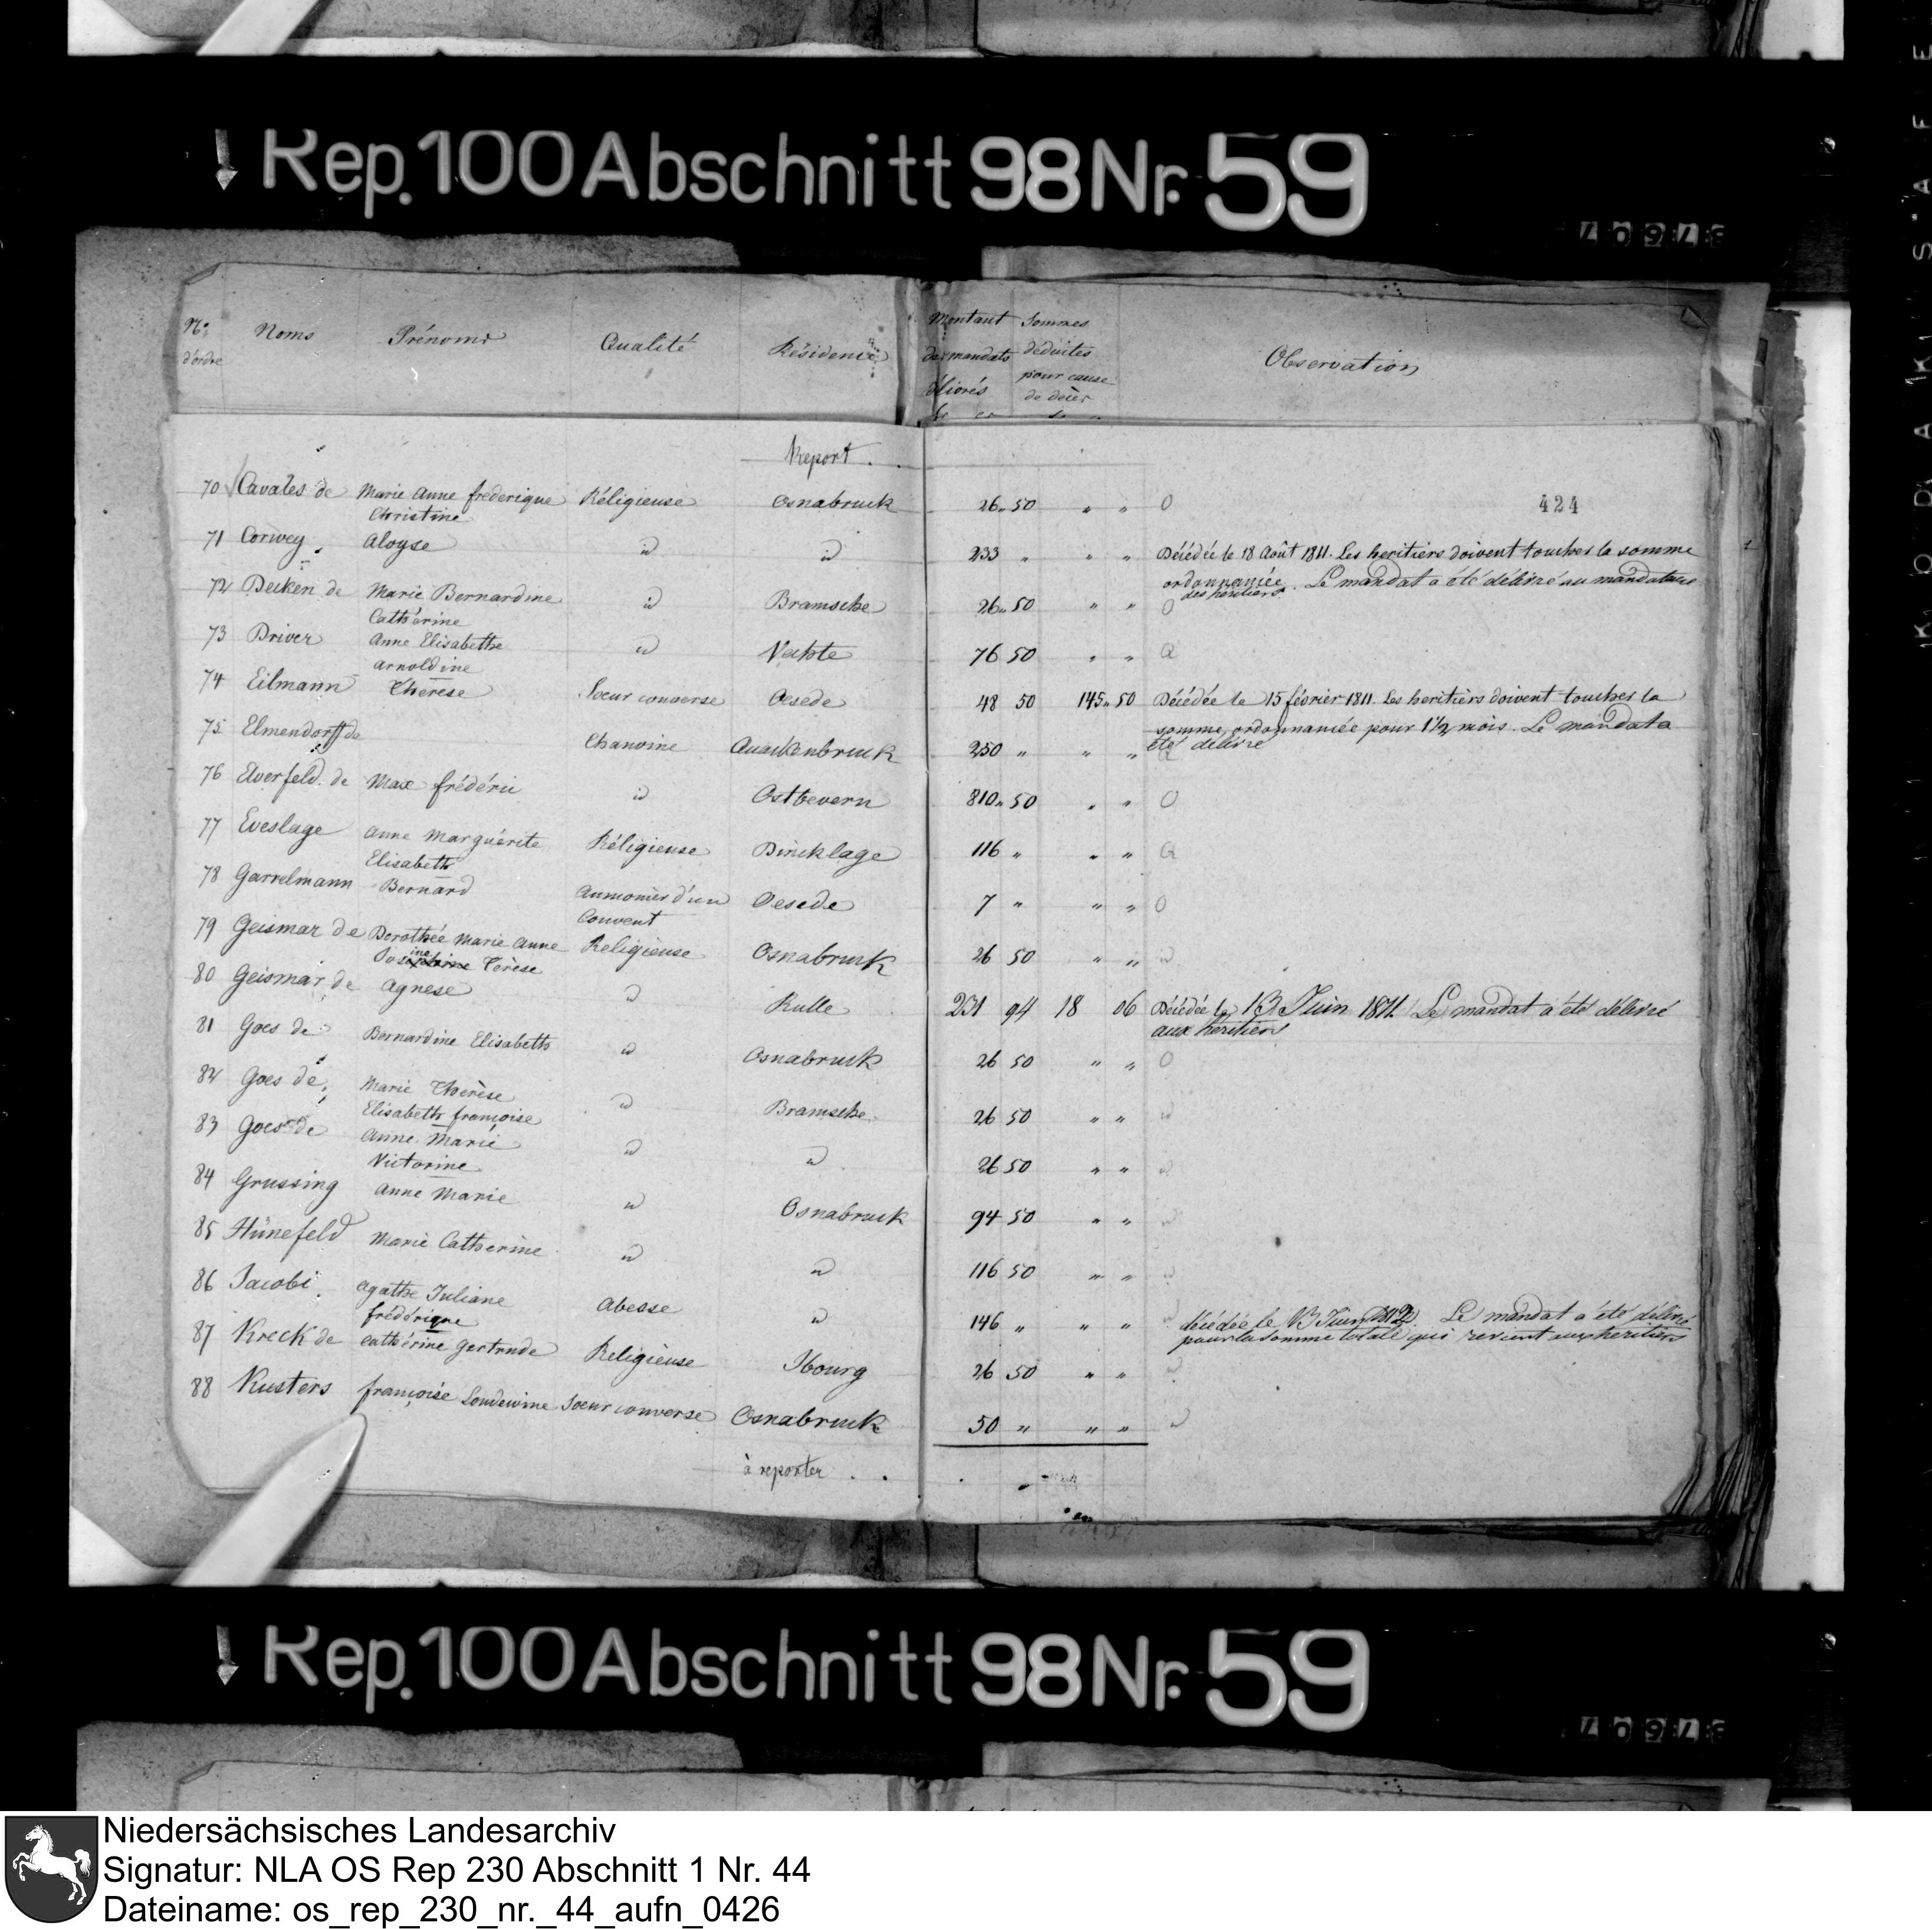 Rep. 100 Abschnitt 98 Nr. 59
No. d'ordre Noms Prénoms Qualité Résidence Montant des mandats délivrés Sommes déduites pour cause de décès Observation
fr cs
Report . .
424
70 Cavales de Marie Anne frederique Réligieuse Osnabruck 26 " 50 " " O
Christine
71 Corwey Aloyse id id 233 " " " Décédée le 18 Août 1811. Les heritiers doivent toucher la somme
ordonnancée. Le mandat a été délivré au mandataire
des heritiers
72 Decken de Marie Bernardine id Bramsche 26 " 50 " " O
Catherine
73 Driver Anne Elisabethe id Vechte 76 50 " "
arnoldine
74 Eilmann Therese Soeur converse Oesede 48 50 145 " 50 Décédée le 15 février 1811. Les heritiers doivent toucher la
somme ordonnancée pour 1 1/2 mois. Le mandat a
été délivré
75 Elmendorff de Chanoine Quackenbruck 250 " " "
76 Elverfeld de Max frédéric id Ostbevern 810 " 50 " " O
77 Eveslage Anne Marguérite Réligieuse Dincklage 116 " " "
Elisabeth
78 Garrelmann Bernard Aumonier d'un Oesede 7 " " " O
Couvent
79 Geismar de Dorothée Marie Anne Religieuse Osnabruck 26 50 " " id
Térèse
80 Geismar de Agnese id Rulle 231 94 18 06 Décédée le 13 Juin 1811. Le mandat a été délivré
aux heritiers
81 Goes de Bernardine Elisabeth id Osnabruck 26 50 " " O
82 Goes de Marie Therèse id Bramsche 26 50 " " id
Elisabeth françoise
83 Goes de Anne Marie id id 26 50 " " id
Victorine
84 Grussing Anne Marie id Osnabruck 94 50 " " id
85 Hünefeld Marie Catherine id id 116 50 " " id
86 Jacobi Agathe Juliane Abesse id 146 " " " décédée le 13 Juin. Le mandat a été délivré
frédérique pour la somme totale qui revient aux heritiers
87 Kreck de Cathérine Gertrude Religieuse Ibourg 26 50 " " id
88 Kusters françoise Loudewine Soeur converse Osnabruck 50 " " " id
à reporter . .
Rep. 100 Abschnitt 98 Nr. 59
Niedersächsisches Landesarchiv
Signatur: NLA OS Rep 230 Abschnitt 1 Nr. 44
Dateiname: os_rep_230_nr._44_aufn_0426